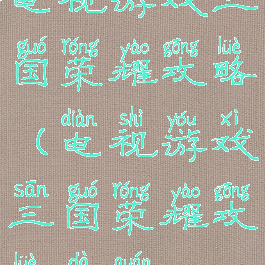 电视游戏三
guó róng yào gōng lüè
国荣耀攻略
diàn shì yóu xì
(电视游戏
sān guó róng yào gōng
三国荣耀攻
lüè dà quán